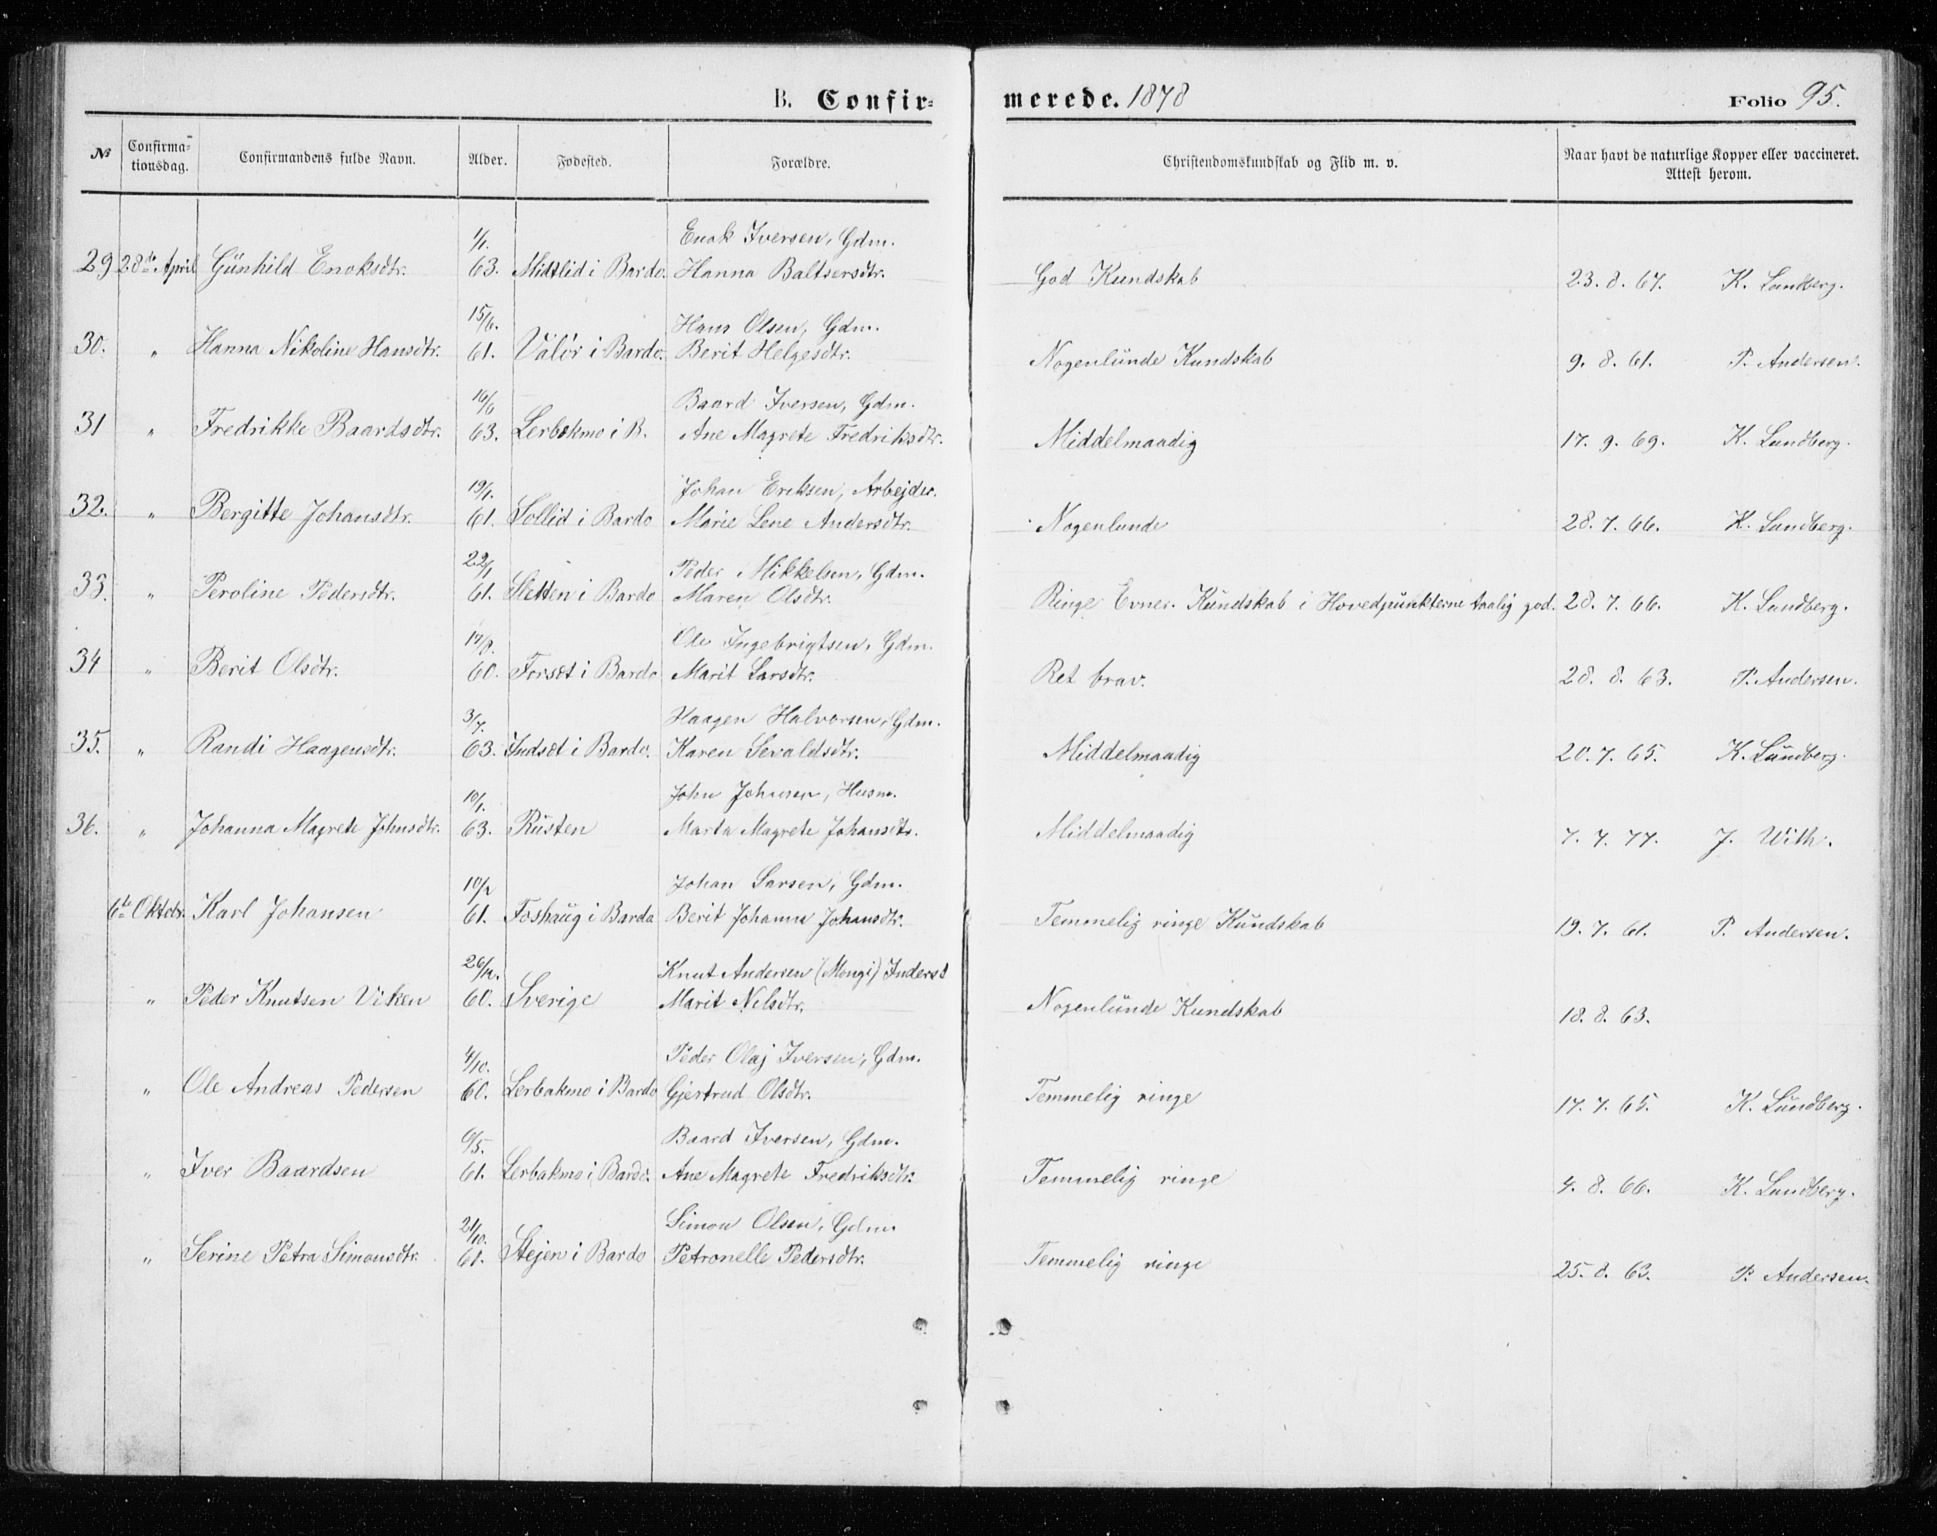 B. Confir= merede. 1878 Folio 95.
No Confirma=tionsdag. Confirmandens fulde Navn. Alder. Fødested. Forældre. Christendomskundskab og Flid m. v. Naar havt de naturlige Kopper eller vaccineret. Attest herom.
1/1. Enok Iversen, Gdm.
29 28de April Gunhild Enoksdtr. 63. Midtlid i Bardo. Hanna Baltsersdtr. God Kundskab 23. 8. 67. K. Lundberg.
15/6. Hans Olsen, Gdm.
30. " Hanna Nikoline Hansdtr. 61. Valør i Bardo. Berit Helgesdtr. Nogenlunde Kundskab 9. 8. 61. P. Andersen.
16/6 Baard Iversen, Gdm.
31 " Fredrikke Baardsdtr. 63. Lerbakmo i B. Ane Magrete Fredriksdtr. Middelmaadig 17. 9. 69. K. Lundberg.
19/1. Johan Eriksen, Arbejder.
32. " Bergitte Johansdtr. 61. Sollid i Bardo Marie Lene Andersdtr. Nogenlunde 28. 7. 66. K. Lundberg.
22/1 Peder Mikkelsen, Gdm.
33. " Peroline Pedersdtr. 61. Sletten i Bardo Maren Olsdtr. Ringe Evner. Kundskab i Hovedpunkterne taalig god. 28. 7. 66. K. Lundberg.
17/8. Ole Ingebrigtsen, Gdm.
34 " Berit Olsdtr. 60. Forset i Bardo Marit Larsdtr. Ret brav. 28. 8. 63. P. Andersen.
3/7. Haagen Halvorsen, Gdm.
35. " Randi Haagensdtr. 63. Indset i Bardo. Karen Sevaldsdtr. Middelmaadig 20. 7. 65. K. Lundberg.
10/1. John Johnsen, Husm.
36. " Johanna Magrete Johnsdtr. 63. Rusten Marta Magrete Johansdtr. Middelmaadig 7. 7. 77. J. With.
10/2 Johan Larsen, Gdm.
6te Oktobr. Karl Johansen 61. Foshaug i Bardo Berit Johanna Johansdtr. Temmelig ringe Kundskab 19. 7. 61. P. Andersen.
26/12. Knut Andersen (Mongi) Inderst
" Peder Knutsen Viken 60. Sverige Marit Nilsdtr. Nogenlunde Kundskab 18. 8. 63.
4/10. Peder Olaj Iversen, Gdm.
" Ole Andreas Pedersen 60. Lerbakmo i Bardo Gjertrud Olsdtr. Temmelig ringe 17. 7. 65. K. Lundberg.
6/5. Baard Iversen, Gdm.
" Iver Baardsen 61. Lerbakmo i Bardo. Ane Magrete Fredriksdtr. Temmelig ringe 4. 8. 66. K. Lundberg.
21/10. Simon Olsen, Gdm.
" Serine Petra Simonsdtr. 61. Stejen i Bardo Petronelle Pedersdtr. Temmelig ringe 25. 8. 63. P. Andersen.